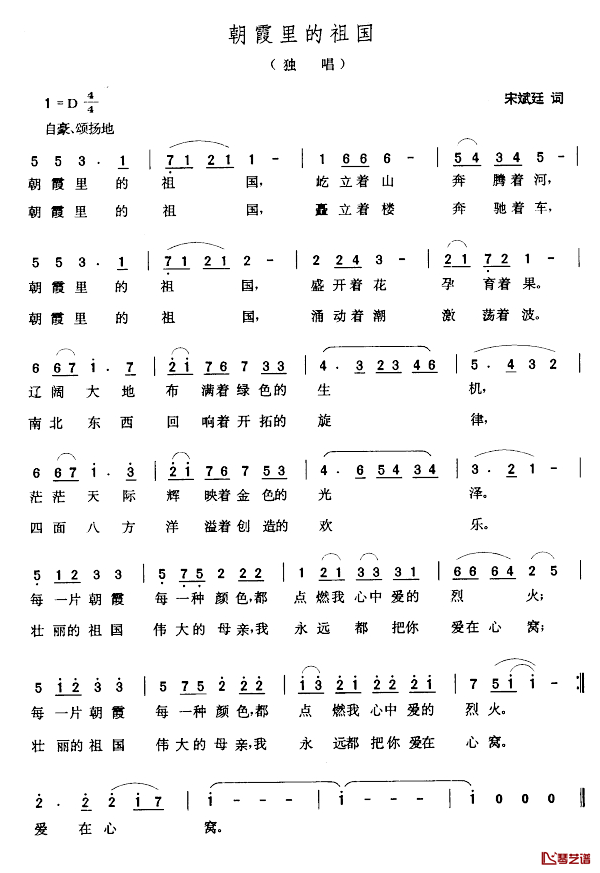 朝霞里的祖国
（独 唱）
1=D 4/4
宋斌廷 词
自豪、颂扬地
5 5 3 · 1 | 7 1 2 1 2 - | 1 6 6 6 - | 5 4 3 4 5 - |
朝霞里 的 祖 国， 屹立着山 奔 腾着河，
朝霞里 的 祖 国， 矗立着楼 奔 驰着车，
5 5 3 · 1 | 7 1 2 1 2 - | 2 2 4 3 - | 2 1 7 2 1 - |
朝霞里 的 祖 国， 盛开着花 孕 育着果。
朝霞里 的 祖 国， 涌动着潮 激 荡着波。
6 6 7 1 · 7 | 2 1 7 6 7 3 3 | 4 · 3 2 3 4 6 | 5 · 4 3 2 |
辽阔 大 地 布 满着绿色的 生 机，
南北 东 西 回 响着开拓的 旋 律，
6 6 7 1 · 3 | 2 1 7 6 7 5 3 | 4 · 6 5 4 3 4 | 3 · 2 1 - |
茫茫 天 际 辉 映着金色的 光 泽。
四面 八 方 洋 溢着创造的 欢 乐。
5 1 2 3 3 | 5 7 5 2 2 2 | 1 2 1 3 3 3 1 | 6 6 6 4 2 5 - |
每一片朝霞 每一种颜色，都 点 燃我心中爱的 烈 火；
壮丽的祖国 伟大的母亲，我 永 远 都 把你 爱在心 窝；
5 1 2 3 3 | 5 7 5 2 2 2 | 1 3 2 1 2 2 2 1 | 7 5 1 1 - :‖
每一片朝霞 每一种颜色，都 点 燃我心中爱的 烈 火。
壮丽的祖国 伟大的母亲，我 永 远都把你爱在 心 窝。
2 · 2 2 2 1 7 | 1 - - - | 1 - - - | 1 0 0 0 ‖
爱 在 心 窝。
琴艺谱